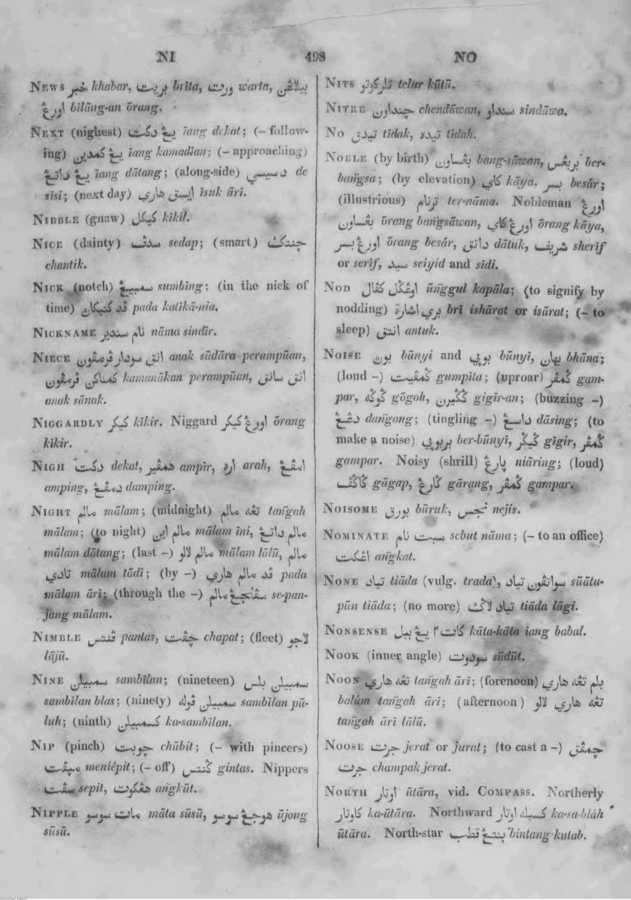 NI 498 NO
NEWS خبر khabar, بريت brita, ورت warta,
اورڠ bilāng-an ōrang.
NEXT (nighest) يڠ دكت īang dekat; (– follow-
ing) يڠ كمدين īang kamadian; (– approaching)
يڠ داتڠ īang dātang; (along-side) دسيسي de
sīsi; (next day) ايسق هاري īsuk āri.
NIBBLE (gnaw) كيكل kikil.
NICE (dainty) سدڤ sedap; (smart)
chantik.
NICK (notch) سمبيڠ sumbing; (in the nick of
time) قد كتيكان pada katīkā-nia.
NICKNAME نام سندير nāma sindīr.
NIECE انق سودار ڤرمڤون anak sūdāra perampūan,
كمناكن ڤرمڤون kamanākan perampūan, انق سانق
anak sānak.
NIGGARDLY كيكر kīkir. Niggard اورڠ كيكر ōrang
kīkir.
NIGH دكت dekat, همڤير ampīr, اره arah,
amping, damping.
NIGHT مالم mālam; (midnight) تڠه مالم tangah
mālam; (to night) مالم اين mālam īni, مالم داتڠ
mālam dātang; (last –) مالم لالو mālam lālū, مالم
تادي mālam tādi; (by –) قد مالم هاري pada
mālam āri; (through the –) سڤانجڠ مالم se-pan-
jang mālam.
NIMBLE ڤنتس pantas, چڤت chapat; (fleet) لاجو
lājū.
NINE سمبيلن sambīlan; (nineteen) سمبيلن بلس
sambīlan blas; (ninety) سمبيلن ڤوله sambīlan pū-
luh; (ninth) كسمبيلن ka-sambīlan.
NIP (pinch) چوبت chūbit; (– with pincers)
meniépit; (– off) ڬنتس gintas. Nippers
سڤت sepit, اڠكوت angkūt.
NIPPLE مات سوسو māta sūsū, هوجڠ سوسو ūjong
sūsū.
NITS تلر كوتو telur kūtū.
NITRE چنداون chendāwan, سنداو sindāwa.
NO تيدق tīdak, تيده tīdah.
NOBLE (by birth) بڠساون bang-sāwan, بربڠس ber-
bangsa; (by elevation) كاي kāya, بسر besár;
(illustrious) ترنام ter-nāma. Nobleman اورڠ
بڠساون ōrang bangsāwan, اورڠ كاي ōrang kāya,
اورڠ بسر ōrang besár, داتق dātuk, شريف sherīf
or serīf, سيد seiyid and sīdi.
NOD اڠڬل كڤال ūnggul kapāla; (to signify by
nodding) بري اشارة bri ishārat or isārat; (– to
sleep) انتق antuk.
NOISE بون būnyi and بوڽي būnyi, بهان bhāna;
(loud –) ڬمڤيت gumpīta; (uproar) ڬمڤر gam-
par, ڬوڬه gōgoh, ڬڬيرن gigir-an; (buzzing –)
دڠڠ dangong; (tingling –) داسڠ dāsing; (to
make a noise) بربوڽي ber-būnyi, ڬيڬر gīgir, ڬمڤر
gampar. Noisy (shrill) ڽارڠ niāring; (loud)
ڬاڬڤ gāgap, ڬارڠ gārang, ڬمڤر gampar.
NOISOME بورق būruk, نجس nejis.
NOMINATE سبت نام sebut nāma; (– to an office)
اڠكت angkat.
NONE تياد tiāda (vulg. trada), سواتڤون تياد sūātu-
pūn tiāda; (no more) تياد لاڬ tiāda lāgi.
NONSENSE كات٢ يڠ ببل kāta-kāta iang babal.
NOOK (inner angle) سودوت sūdūt.
NOON تڠه هاري tangah āri; (forenoon) بلم تڠه هاري
balūm tangah āri; (afternoon) تڠه هاري لالو
tangah āri lālū.
NOOSE جرت jerat or jarat; (to cast a –) چمڤق
جرت champak jerat.
NORTH اوتار ūtāra, vid. COMPASS. Northerly
كاوتار ka-ūtāra. Northward كسبله اوتار ka-sa-blāh
ūtāra. North-star بنتڠ قطب bintang-kutab.